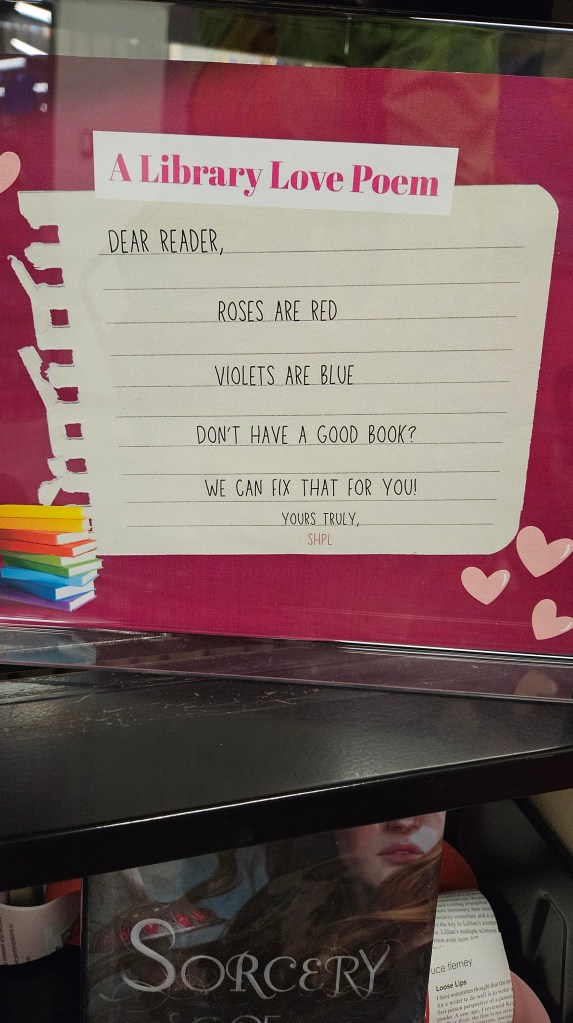 A Library Love Poem
DEAR READER,
ROSES ARE RED
VIOLETS ARE BLUE
DON'T HAVE A GOOD BOOK?
WE CAN FIX THAT FOR YOU!
YOURS TRULY,
SHPL
SORCERY
OF
uce tierney
Loose Lips